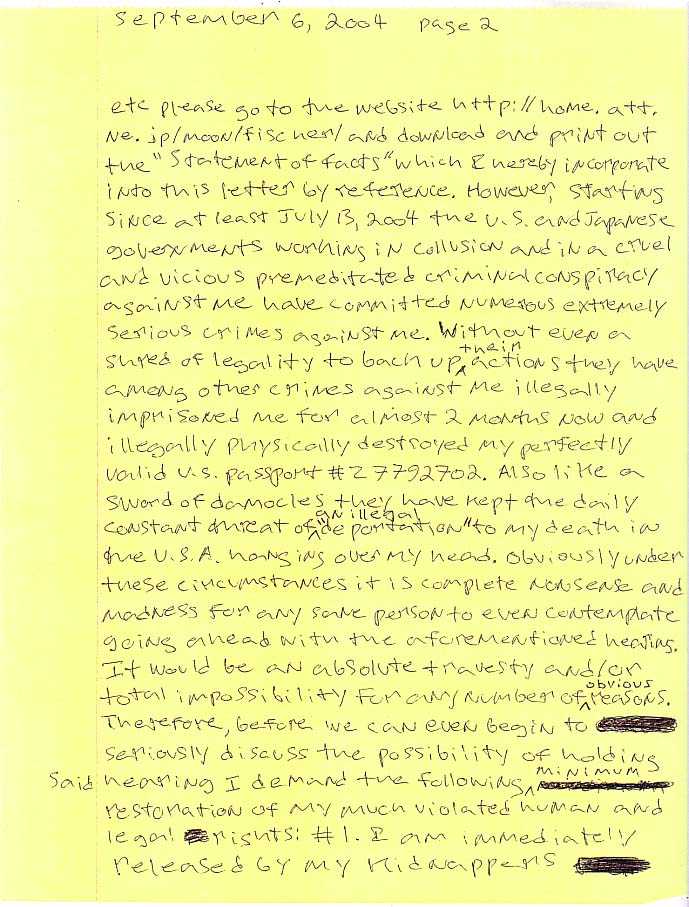 September 6, 2004 page 2
etc please go to the website http://home.att.
ne.jp/moon/fischer/ and download and print out
the "Statement of facts" which I hereby incorporate
into this letter by reference. However, starting
since at least July 13, 2004 the U.S. and Japanese
governments working in collusion and in a cruel
and vicious premeditated criminal conspiracy
against me have committed numerous extremely
serious crimes against me. Without even a
shred of legality to back up their actions they have
among other crimes against me illegally
imprisoned me for almost 2 months now and
illegally physically destroyed my perfectly
valid U.S. passport #Z7792702. Also like a
sword of damocles they have kept the daily
constant threat of an illegal "deportation" to my death in
the U.S.A. hanging over my head. Obviously under
these circumstances it is complete nonsense and
madness for any sane person to even contemplate
going ahead with the aforementioned hearing.
It would be an absolute travesty and/or
total impossibility for any number of obvious reasons.
Therefore, before we can even begin to
seriously discuss the possibility of holding
said hearing I demand the following minimum
restoration of my much violated human and
legal rights: #1. I am immediately
released by my kidnappers